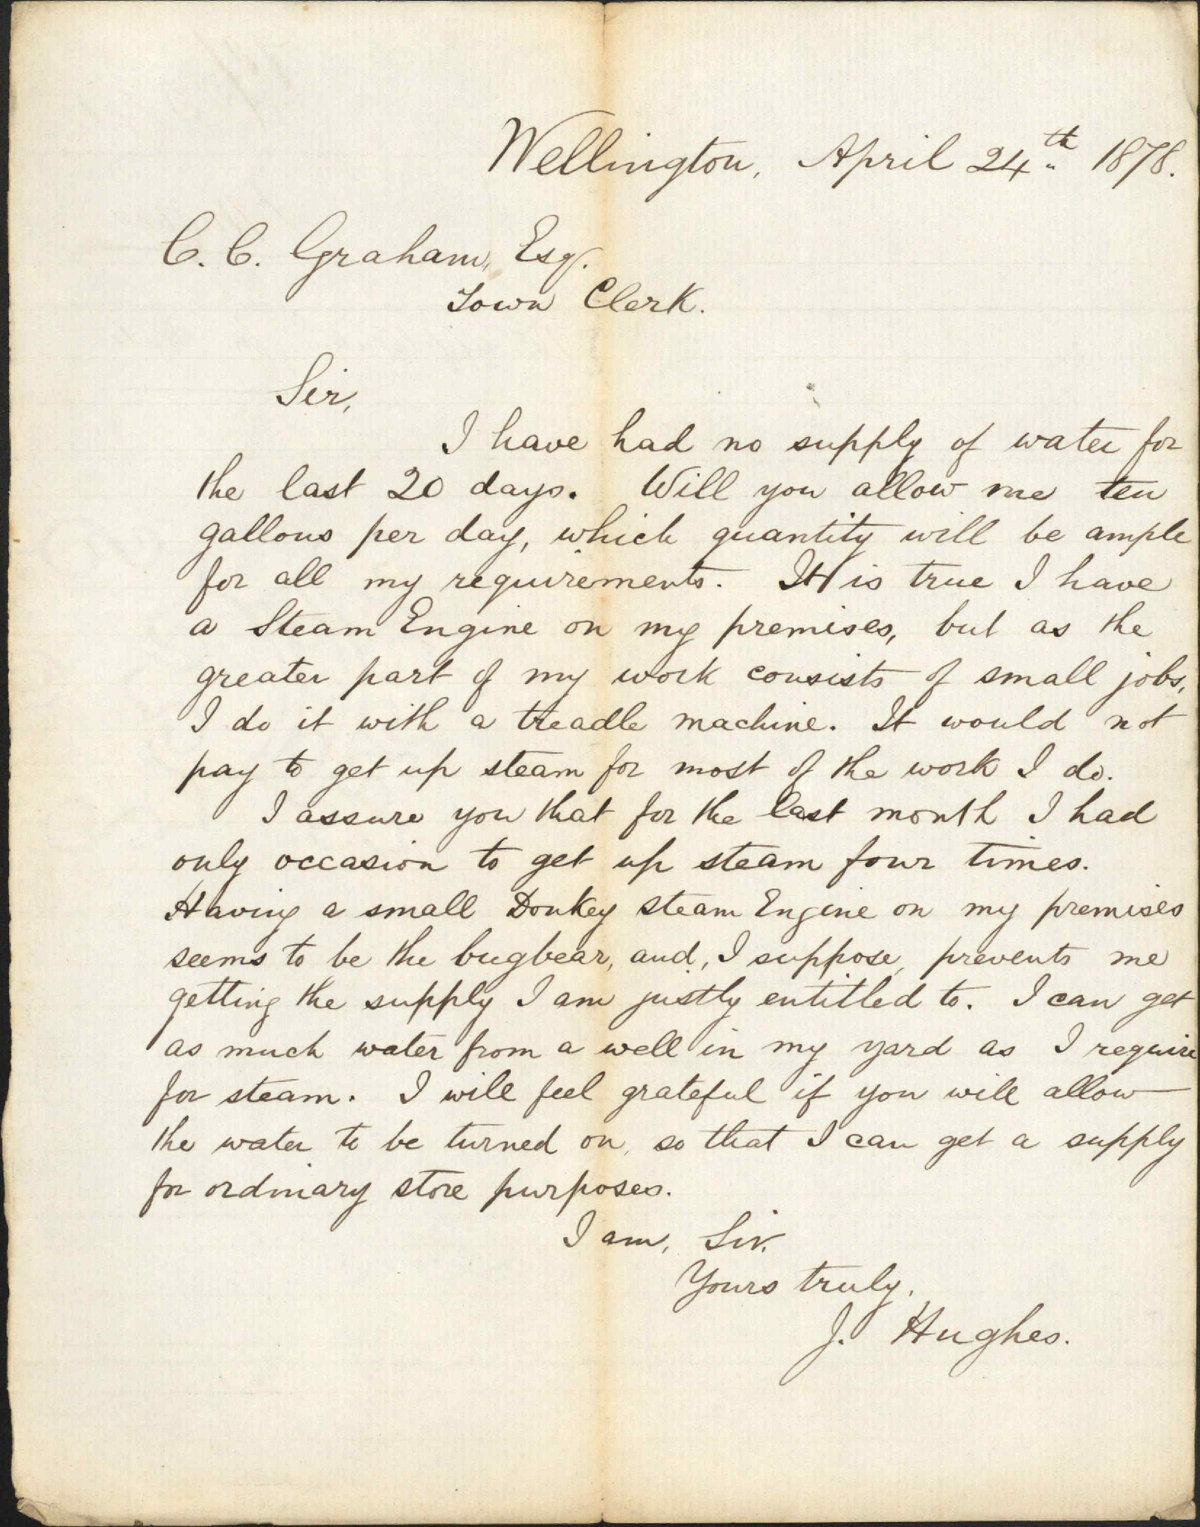 Wellington, April 24th 1878.
C. C. Graham, Esq.
Town Clerk.
Sir,
I have had no supply of water for
the last 20 days. Will you allow me ten
gallons per day, which quantity will be ample
for all my requirements. It is true I have
a Steam Engine on my premises, but as the
greater part of my work consists of small jobs,
I do it with a treadle machine. It would not
pay to get up steam for most of the work I do.
I assure you that for the last month I had
only occasion to get up steam four times.
Having a small Donkey steam Engine on my premises
seems to be the bugbear, and, I suppose, prevents me
getting the supply I am justly entitled to. I can get
as much water from a well in my yard as I require
for steam. I will feel grateful if you will allow
the water to be turned on, so that I can get a supply
for ordinary store purposes.
I am, Sir.
Yours truly,
J. Hughes.